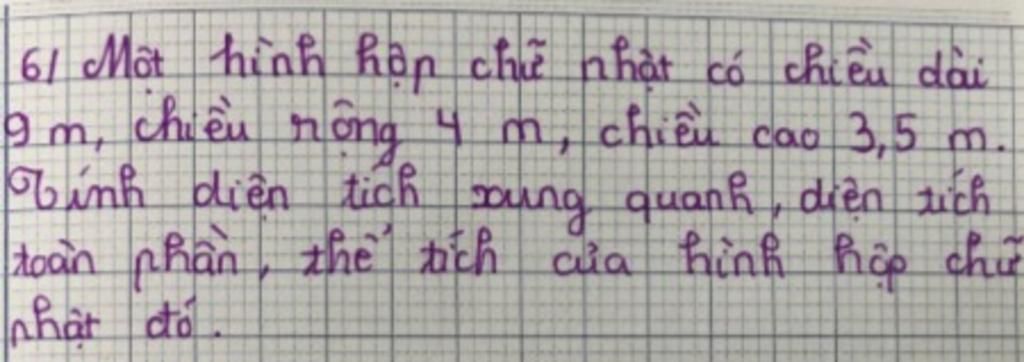 6/ Một hình hộp chữ nhật có chiều dài
9 m, chiều rộng 4 m, chiều cao 3,5 m.
Tính diện tích xung quanh, diện tích
toàn phần, thể tích của hình hộp chữ
nhật đó.